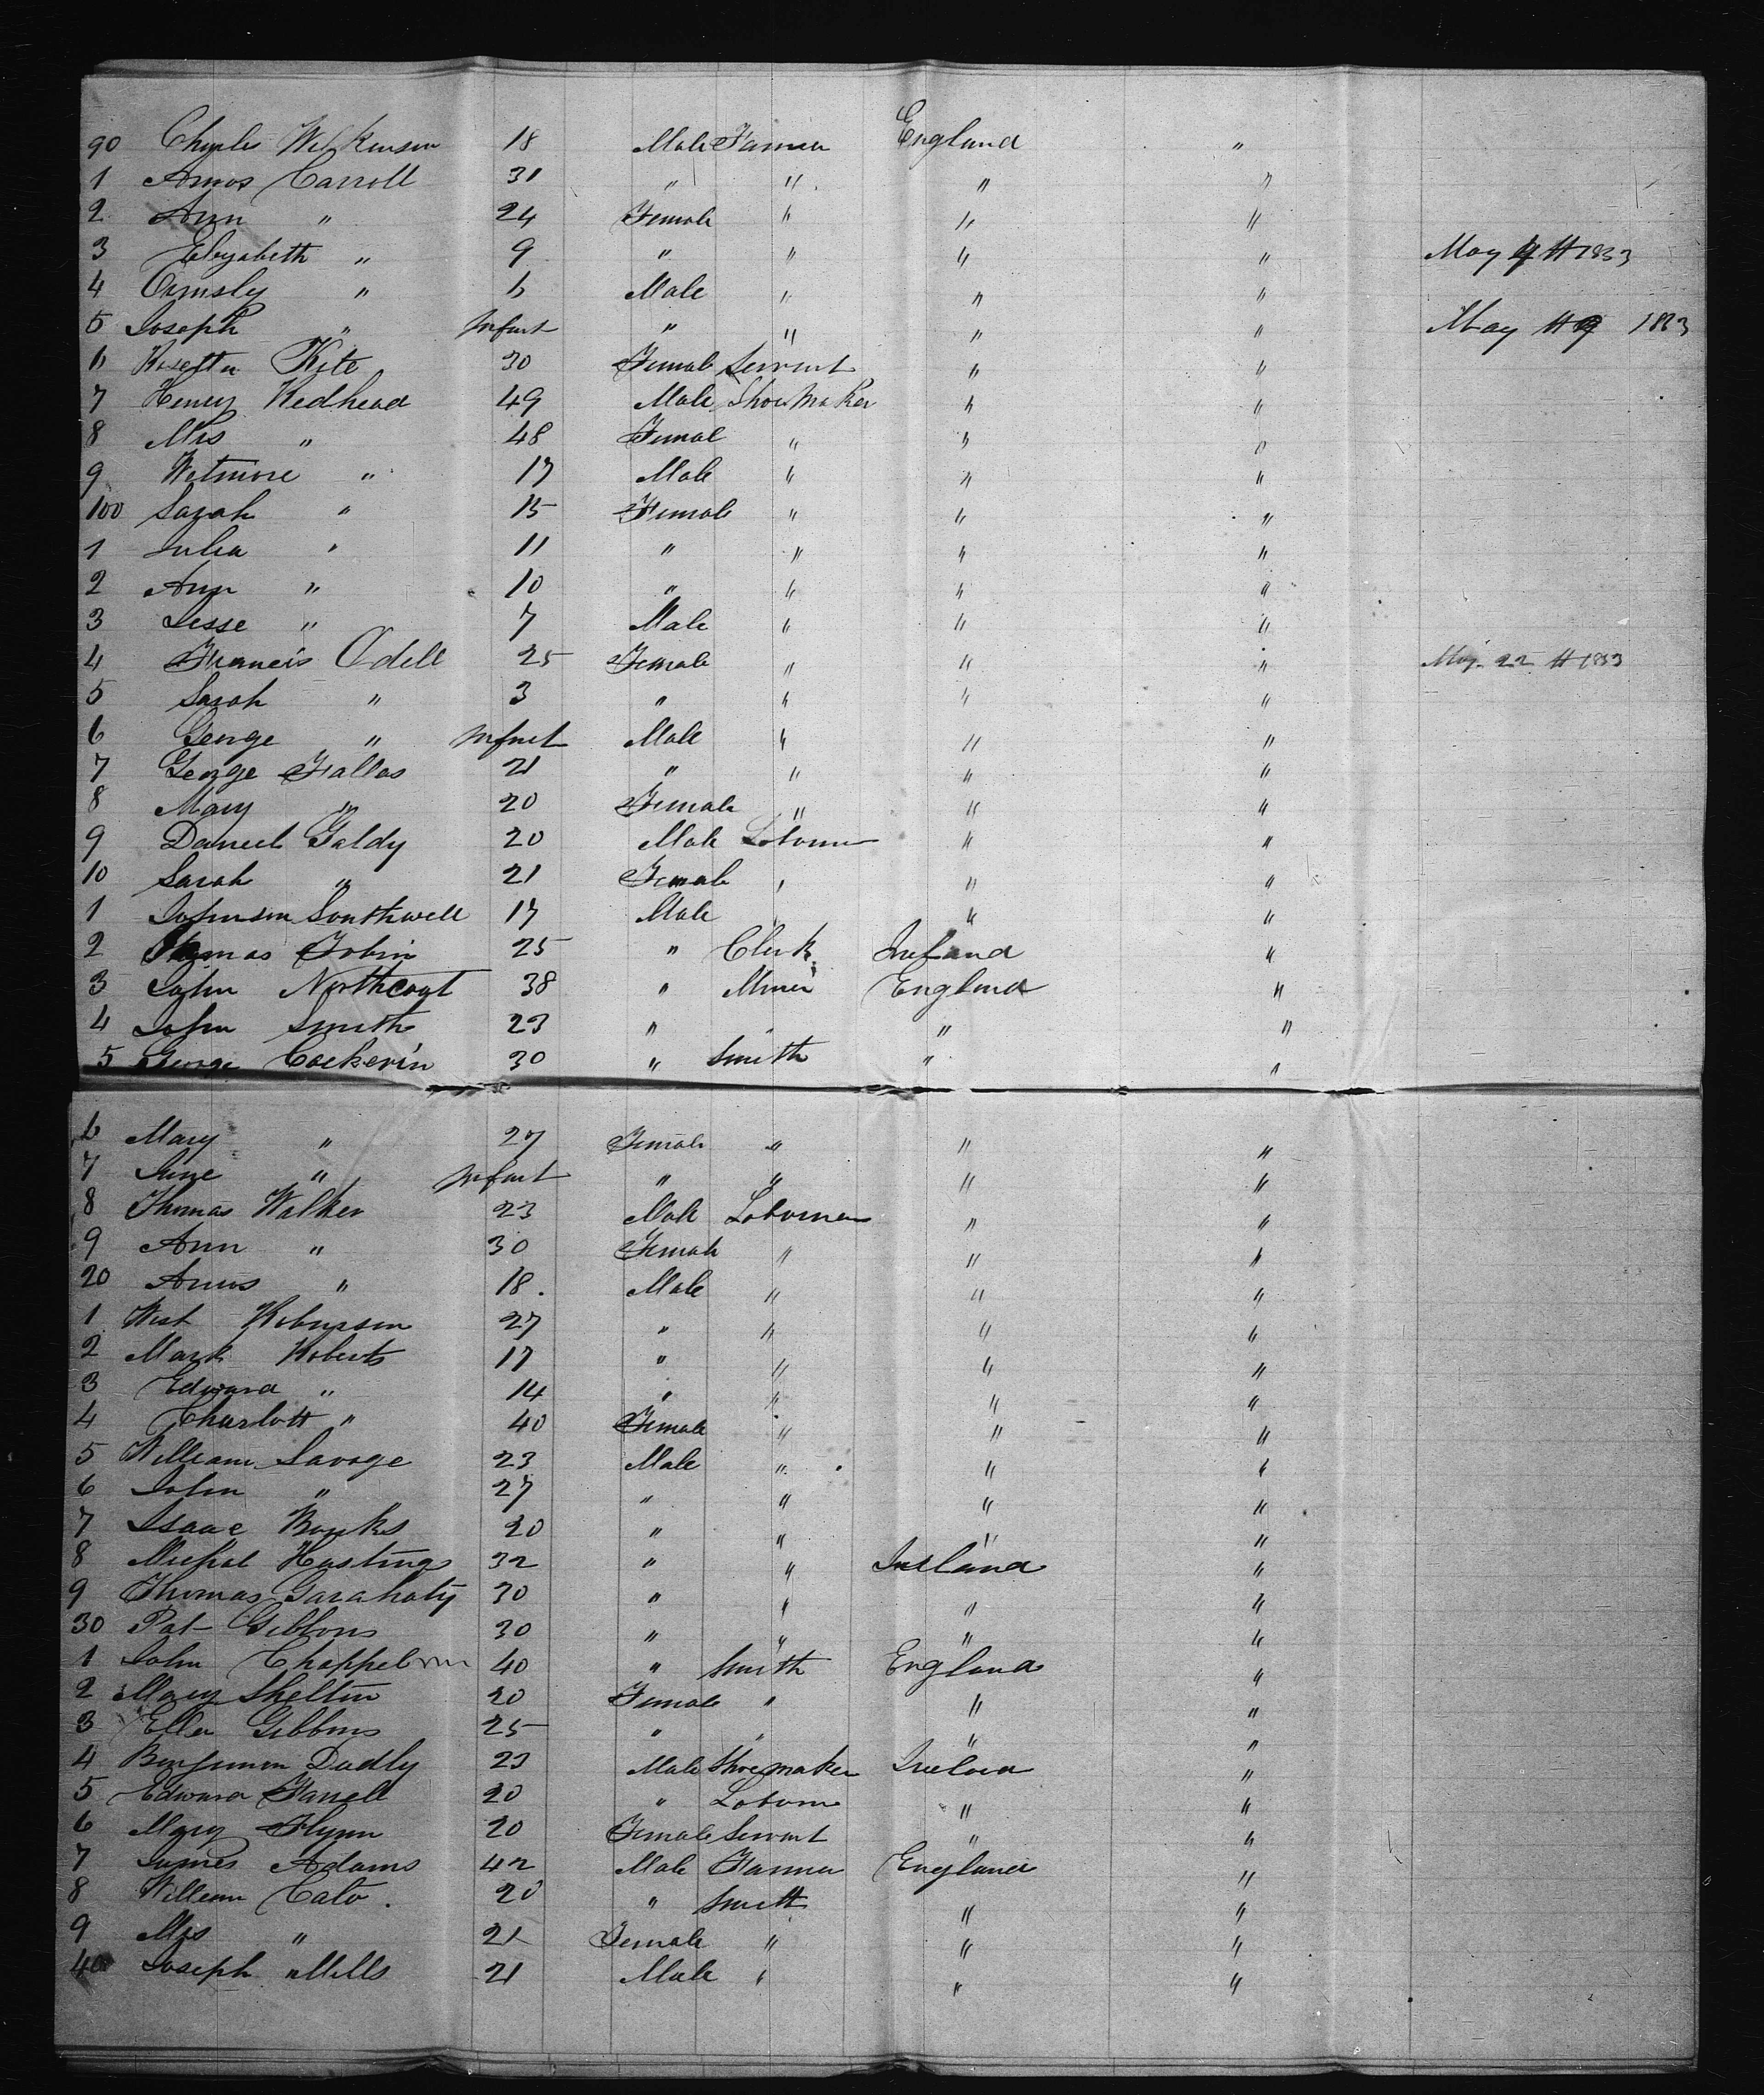 90 Charles Wilkinson 18 Male Farmer England "
1 Amos Carroll 31 " " " "
2 Ann " 24 Female " " "
3 Elizabeth " 9 " " " " May 9th 1853
4 Ormsly " 6 Male " " "
5 Joseph " Infant " " " " May th 9 1853
6 Rosetta Kite 30 Female Servant " "
7 Henry Redhead 49 Male Shoe Maker " "
8 Mrs " 48 Female " " "
9 Wetmore " 17 Male " " "
100 Sarah " 15 Female " " "
1 Julia " 11 " " " "
2 Ann " 10 " " " "
3 Jesse " 7 Male " " "
4 Francis Odell 25 Female " " " May 22th 1853
5 Sarah " 3 " " " "
6 George " Infant Male " " "
7 George Fallas 21 " " " "
8 Mary " 20 Female " " "
9 Daniel Galdy 20 Male Laborer " "
10 Sarah " 21 Female " " "
1 Johnson Southwell 17 Male " "
2 Thomas Tobin 25 " Clerk Ireland "
3 John Northcoat 38 " Miner England "
4 John Smith 23 " " " "
5 George Cockerin 30 " Smith " "
6 Mary " 27 Female " " "
7 Jane " Infant " " " "
8 Thomas Walker 23 Male Laborer " "
9 Ann " 30 Female " " "
20 Amos " 18 Male " " "
1 West Robinson 27 " " " "
2 Mark Roberts 17 " " " "
3 Edward " 14 " " " "
4 Charlott " 40 Female " " "
5 William Savage 23 Male " " "
6 John " 27 " " " "
7 Isaac Banks 20 " " " "
8 Michal Hasting 32 " " Ireland "
9 Thomas Garahaty 30 " " " "
30 Pat Gibbons 30 " " " "
1 John Chappel 40 " Smith England "
2 Mary Shelton 20 Female " " "
3 Ellen Gibbons 25 " " " "
4 Benjamin Dudly 23 Male Shoemaker Ireland "
5 Edward Farrell 20 " Laborer " "
6 Mary Flynn 20 Female Servant " "
7 James Adams 42 Male Farmer England "
8 William Cato 20 " Smith " "
9 Mrs " 21 Female " " "
40 Joseph Mills 21 Male " " "